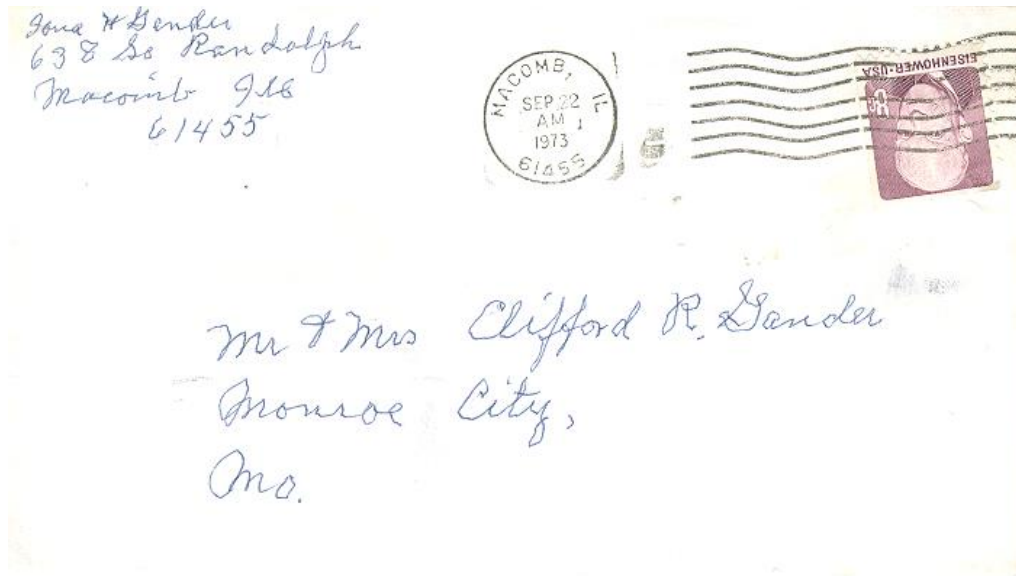 Iona H Gander
638 So Randolph
Macomb Ill
61455
MACOMB, IL
SEP 22
AM
1973
61455
EISENHOWER·USA
8c
Mr & Mrs Clifford R. Gander
Monroe City,
Mo.